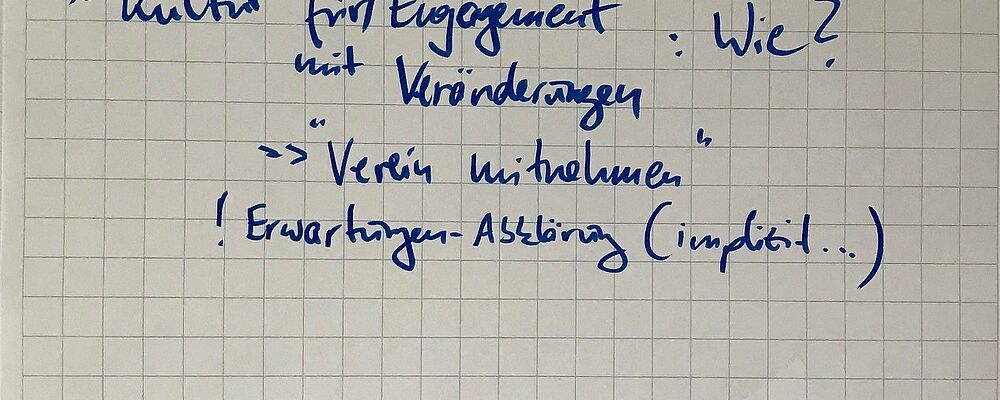 " Kultur für/ Engagement
: Wie?
mit Veränderungen
>> "Verein mitnehmen"
! Erwartungen-Abklärung (implizit...)